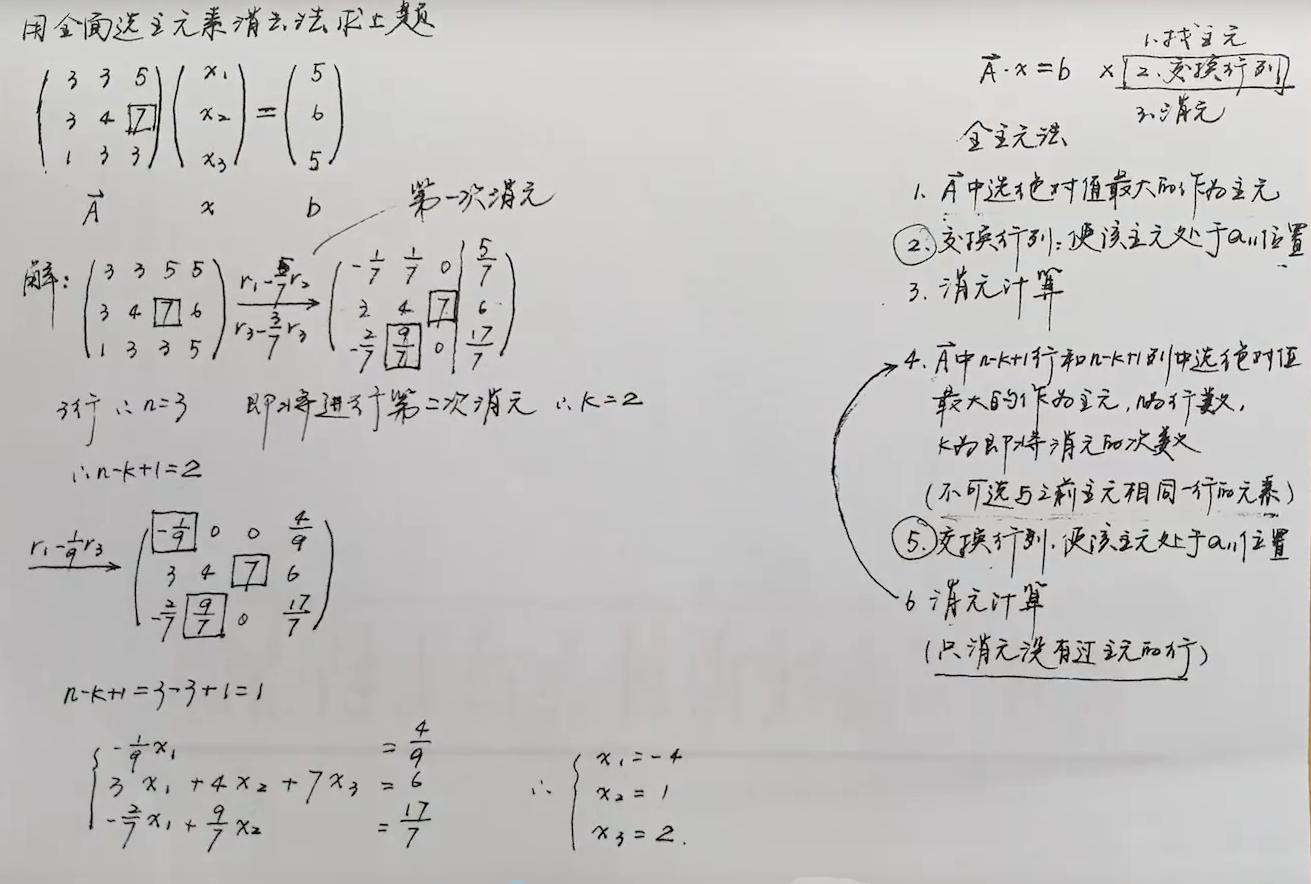 用全面选主元素消去法求上题
3 3 5 x₁ 5
3 4 7 x₂ = 6
1 3 3 x₃ 5
A⃗ x b
第一次消元
解: 3 3 5 5 r₁-5/7r₂ -1/7 1/7 0 5/7
3 4 7 6 r₃-3/7r₃ 3 4 7 6
1 3 3 5 -2/7 9/7 0 17/7
3行 ∴n=3 即将进行第二次消元 ∴k=2
∴n-k+1=2
r₁-1/9r₃ -1/9 0 0 4/9
3 4 7 6
-2/7 9/7 0 17/7
n-k+1=3-3+1=1
-1/9x₁ = 4/9
3x₁+4x₂+7x₃ = 6
-2/7x₁+9/7x₂ = 17/7
∴ x₁=-4
x₂=1
x₃=2.
1.找主元
A⃗·x=b × 2.交换行列
3.消元
全主元法
1. A⃗中选绝对值最大的作为主元
2.交换行列:使该主元处于a₁₁位置
3.消元计算
4. A⃗中n-k+1行和n-k+1列中选绝对值
最大的作为主元,n为行数,
k为即将消元的次数
(不可选与之前主元相同一行的元素)
5.交换行列,使该主元处于a₁₁位置
6 消元计算
(只消元没有过主元的行)